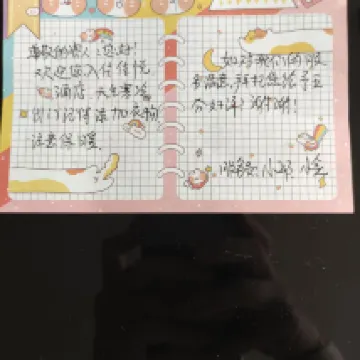 尊敬的客人：您好！
欢迎您入住佳悦
酒店，天气寒冷
出行记得添加衣物
注意保暖。
如对我们的服
务满意，拜托您给予五
分好评！谢谢！
服务员：小